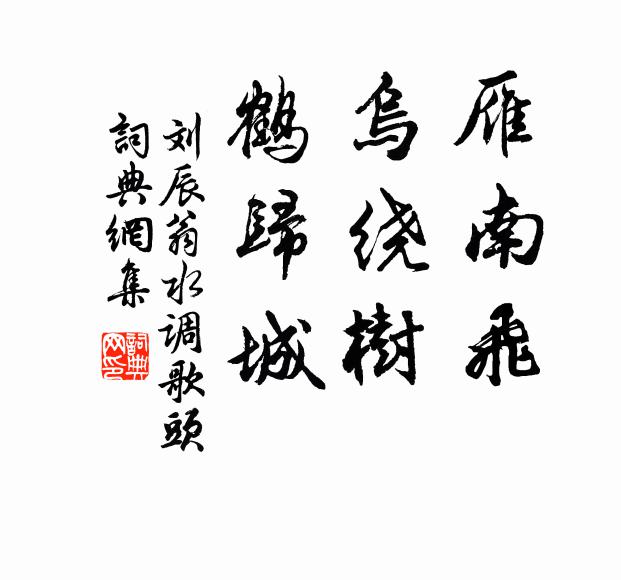 雁南飛
烏绕樹
鶴歸城
刘辰翁水调歌頭
詞典網集
詞典
网印